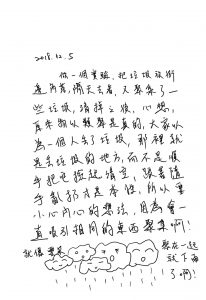 2018.12.5
做一個實驗，把垃圾放街
邊角落，隔天去看，又聚集了一
些垃圾，清掉之後，心想，
原來物以類聚是真的，大家以
為一個人丟了垃圾，那裡就
是丟垃圾的地方，而不是順
手把它撿起清空，跟著隨
手亂扔才是本性，所以要
小心內心的想法，因為會一
直吸引相同的東西聚集啊！
就像雲朵
聚在一起
就下雨
了啊！